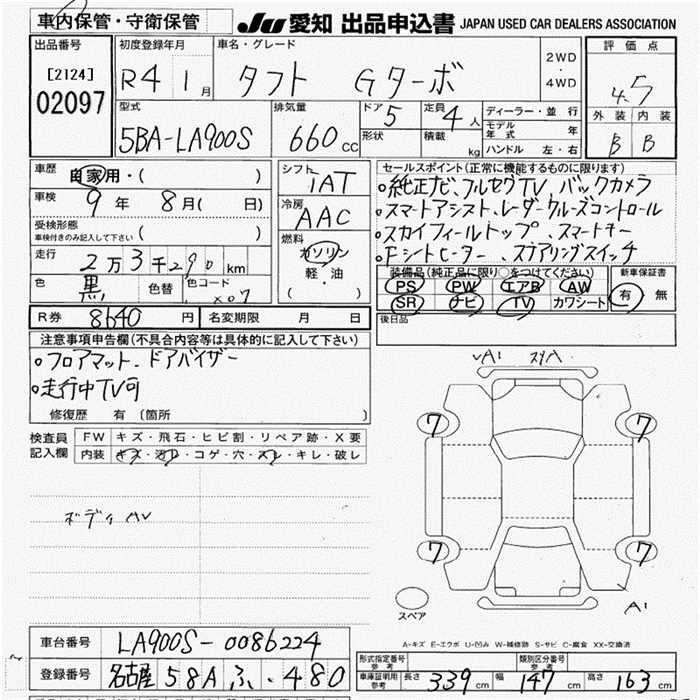 車内保管・守衛保管 JU 愛知 出品申込書 JAPAN USED CAR DEALERS ASSOCIATION
出品番号 初度登録年月 車名・グレード 評価点
[2124] R4 1月 タフト Gターボ 2WD・4WD 4.5
02097 型式 排気量 ドア 定員 ディーラー・並行 外装 内装
5BA-LA900S 660cc 5 4人 モデル年式 年 B B
形状 積載 kg ハンドル 左・右
車歴 自家用・( ) シフト IAT セールスポイント(正常に機能するものに限ります)
車検 9年 8月( 日) 冷房 AAC
。純正ナビ、フルセグTV、バックカメラ
。スマートアシスト、レーダークルーズコントロール
。スカイフィールトップ、スマートキー
。Fシートヒーター、ステアリングスイッチ
受検形態 車検付きのみ記入して下さい ( ) 燃料 ガソリン 軽・油 ( )
走行 2万3千290km 装備品(純正品に限り○をつけてください) 新車保証書
色 黒 色替 色コード X07 PS PW エアB AW 有 無
SR ナビ TV カワシート
R券 8640円 名変期限 月 日 後日品
注意事項申告欄(不具合内容等は具体的に記入して下さい)
。フロアマット、ドアバイザー
。走行中TV可
修復歴 有 (箇所 )
検査員記入欄 FW キズ・飛石・ヒビ割・リペア跡・X要
内装 キズ・汚レ・コゲ・穴・スレ・キレ・破レ
ボディAV
A1
7 7
7 7
スペア A1
A-キズ E-エクボ U-凹み W-補修跡 S-サビ C-腐食 XX-交換済
車台番号 LA900S-0086224
登録番号 名古屋 58A ふ・480
形式指定番号 参考 類別区分番号 参考
車庫証明用 参考 長さ 339cm 幅 147cm 高さ 163cm